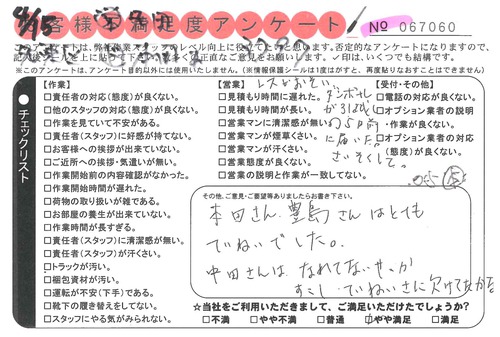 お客様不満足度アンケート
No 067060
4/15
このアンケートは、弊社
否定的なアンケートになりますので、
正直なご意見をお願いします。✓印は、いくつでも結構です。
※このアンケートは、アンケート目的以外には使用いたしません。(※情報保護シールは1度はがすと、再度貼りなおすことはできません)
チェックリスト
【作業】
□責任者の対応(態度)が良くない。
□他のスタッフの対応(態度)が良くない。
□作業を見ていて不安がある。
□責任者(スタッフ)に好感が持てない。
□お客様への挨拶が出来ていない。
□ご近所への挨拶・気遣いが無い。
□作業開始前の内容確認がなかった。
□作業開始時間が遅れた。
□荷物の取り扱いが雑である。
□お部屋の養生が出来ていない。
□作業時間が長すぎる。
□責任者(スタッフ)に清潔感が無い。
□責任者(スタッフ)が汗くさい。
□トラックが汚い。
□梱包資材が汚い。
□運転が不安(下手)である。
□靴下の履き替えをしてない。
□スタッフにやる気がみられない。
【営業】
レスがおそい。
□見積もり時間に遅れた。
□見積もり時間が長い。
□営業マンに清潔感が無い
□営業マンが煙草くさい。
□営業マンが汗くさい。
□営業態度が良くない。
□営業の説明と作業が一致してない。
ダンボール
が引越し
の5日前
に届いた。
【受付・その他】
□電話の対応が良くない。
□オプション業者の説明
□オプション業者の対応
(態度)が良くない。
その他、ご意見・ご要望等ありましたらお書き下さい。
本田さん、豊島さんはとても
ていねいでした。
中田さんは なれてないせいか
すこし ていねいさに欠けてたかな
☆当社をご利用いただきまして、ご満足いただけたでしょうか?
□不満 □やや不満 □普通 ☑やや満足 □満足